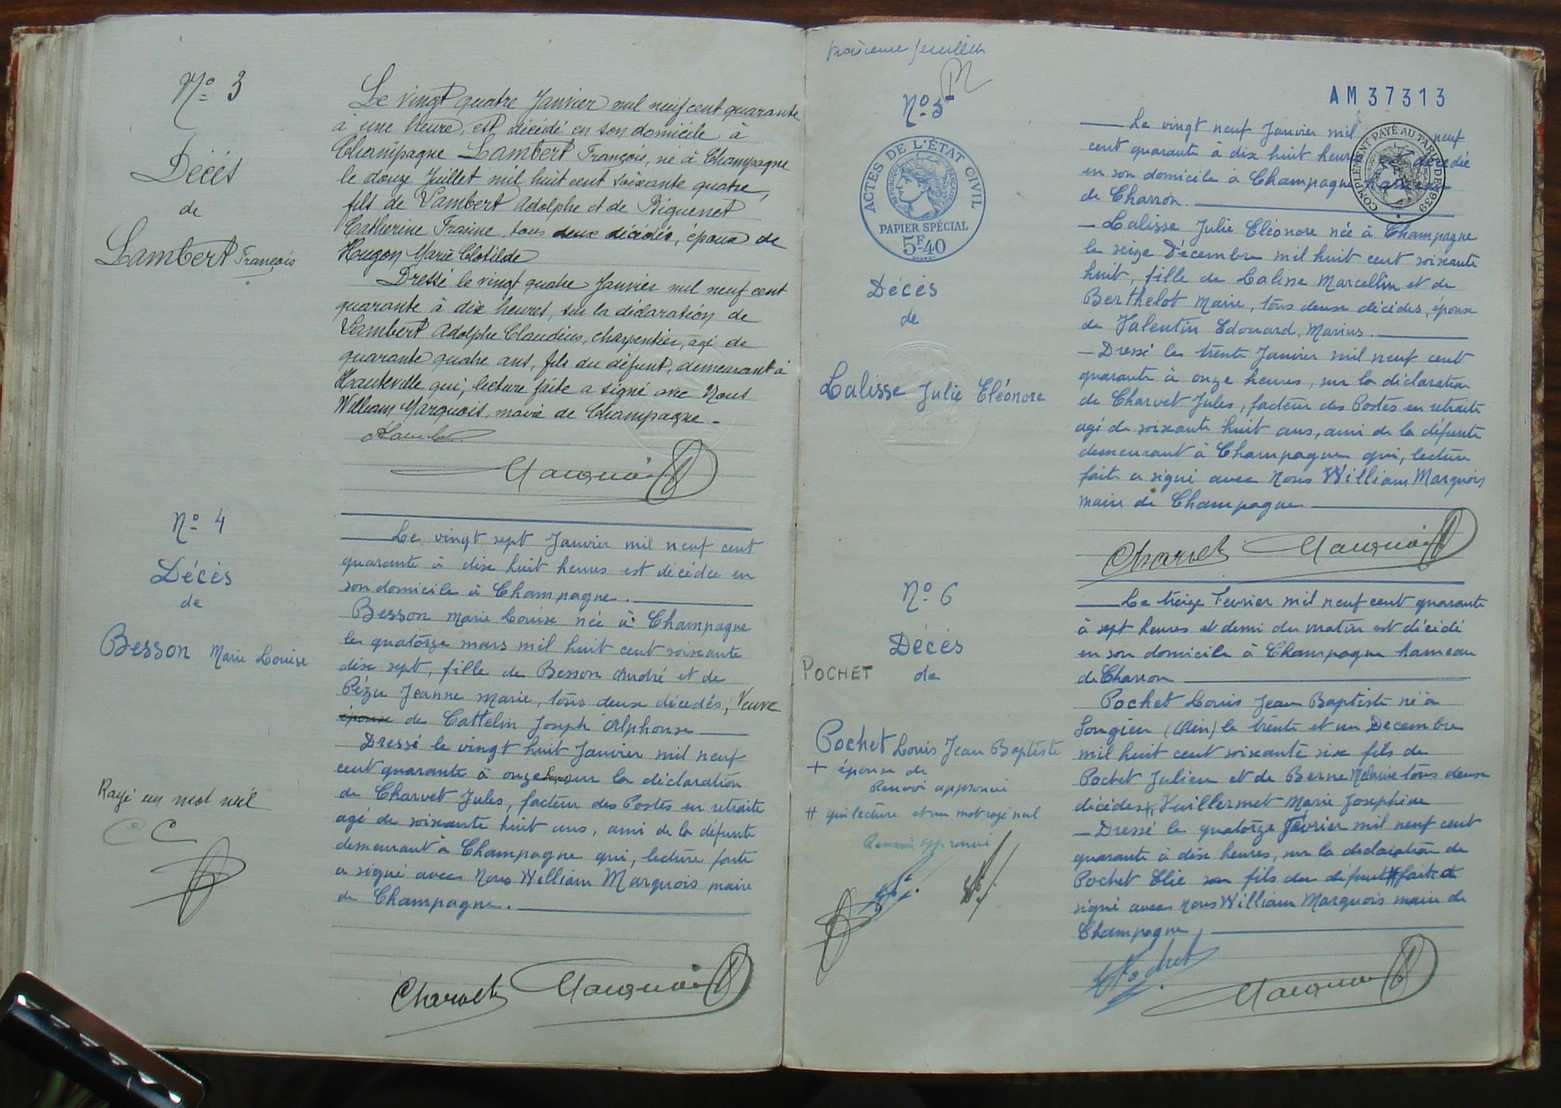 N° 3
Décés
de
Lambert François
Le vingt quatre Janvier mil neuf cent quarante
à une heure, est décédé en son domicile à
Champagne Lambert François, né à Champagne
le douze Juillet mil huit cent soixante quatre,
fils de Lambert Adolphe et de Béguenet
Catherine Fraine, tous deux décédés, époux de
Hugon Marie Clotilde
Dressé le vingt quatre Janvier mil neuf cent
quarante à dix heures, sur la déclaration de
Lambert Adolphe Claudius, charpentier, agé de
quarante quatre ans, fils du défunt, demeurant à
Hauteville qui, lecture faite a signé avec Nous
William Marquois, maire de Champagne.
Marquois
N° 4
Décés
de
Besson Marie Louise
Rayé un mot nul
Le vingt sept Janvier mil neuf cent
quarante à dix huit heures est décédée en
son domicile à Champagne.
Besson Marie Louise née à Champagne
le quatorze mars mil huit cent soixante
dix sept, fille de Besson André et de
Pézu Jeanne Marie, tous deux décedés, Veuve
épouse de Cattelin Joseph Alphonse
Dressé le vingt huit Janvier mil neuf
cent quarante à onze sur la déclaration
de Charvet Jules, facteur des Postes en retraite
agé de soixante huit ans, ami de la défunte
demeurant à Champagne qui, lecture faite
a signé avec Nous William Marquois maire
de Champagne.
Charvet Marquois
troisième feuillet
N° 5
AM37313
ACTES DE L'ÉTAT CIVIL
PAPIER SPÉCIAL
5F40
COMPLÉMENT PAYÉ AU TARIF DE 1939
Décés
de
Lalisse Julie Eléonore
Le vingt neuf Janvier mil neuf
cent quarante à dix huit heures décédée
en son domicile à Champagne hameau
de Charron.
Lalisse Julie Eléonore née à Champagne
le seize Décembre mil huit cent soixante
huit, fille de Lalisse Marcellin et de
Berthelot Marie, tous deux décédes, épouse
de Valentin Edouard, Marius.
Dressé le trente Janvier mil neuf cent
quarante à onze heures, sur la déclaration
de Charvet Jules, facteur des Postes en retraite
agé de soixante huit ans, ami de la défunte
demeurant à Champagne qui, lecture
faite a signé avec Nous William Marquois
maire de Champagne
Charvet Marquois
N° 6
Décés
POCHET de
Pochet Louis Jean Baptiste
+ époux de
Renvoi approuvé
# qui lecture et un mot rayé nul
Renvoi approuvé
Le treize Fevrier mil neuf cent quarante
à sept heures et demi du matin est décédé
en son domicile à Champagne hameau
de Charron
Pochet Louis Jean Baptiste né à
Songieu (Ain) le trente et un Decembre
mil huit cent soixante six fils de
Pochet Julien et de Berne Mélanie tous deux
décédés+, Vuillermet Marie Josephine
Dressé le quatorze Février mil neuf cent
quarante à dix heures, sur la déclaration de
Pochet Elie son fils du défunt# faite a
signé avec Nous William Marquois maire de
Champagne,
Pochet Marquois